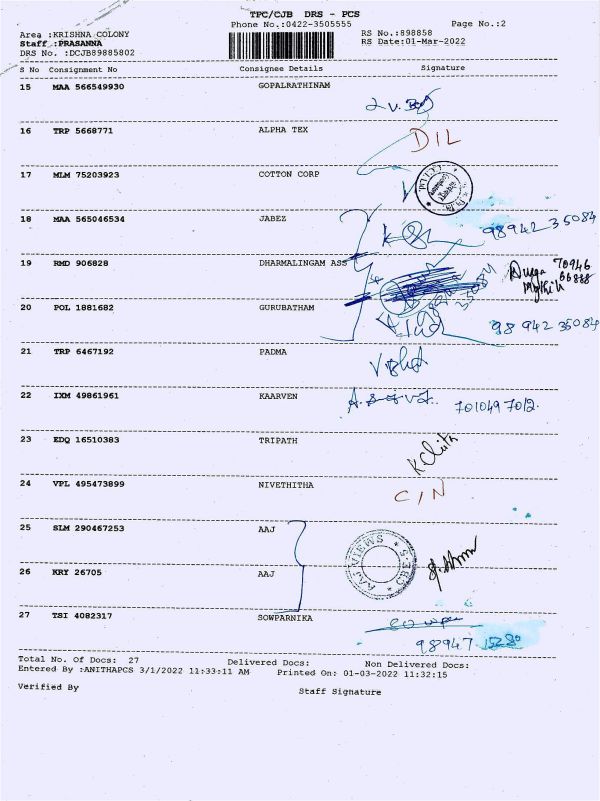 TPC/CJB DRS - PCS
Phone No.:0422-3505555 Page No.:2
Area :KRISHNA COLONY RS No.:898858
Staff :PRASANNA RS Date:01-Mar-2022
DRS No. :DCJB89885802
S No Consignment No Consignee Details Signature
15 MAA 566549930 GOPALRATHINAM
16 TRP 5668771 ALPHA TEX DIL
17 MLM 75203923 COTTON CORP
18 MAA 565046534 JABEZ 98942 35084
19 RMD 906828 DHARMALINGAM ASS
20 POL 1881682 GURUBATHAM 98942 35084
21 TRP 6467192 PADMA
22 IXM 49861961 KAARVEN 7010497012.
23 EDQ 16510383 TRIPATH
24 VPL 495473899 NIVETHITHA C/N
25 SLM 290467253 AAJ
26 KRY 26705 AAJ
27 TSI 4082317 SOWPARNIKA
98947
Total No. Of Docs: 27 Delivered Docs: Non Delivered Docs:
Entered By :ANITHAPCS 3/1/2022 11:33:11 AM Printed On: 01-03-2022 11:32:15
Verified By Staff Signature